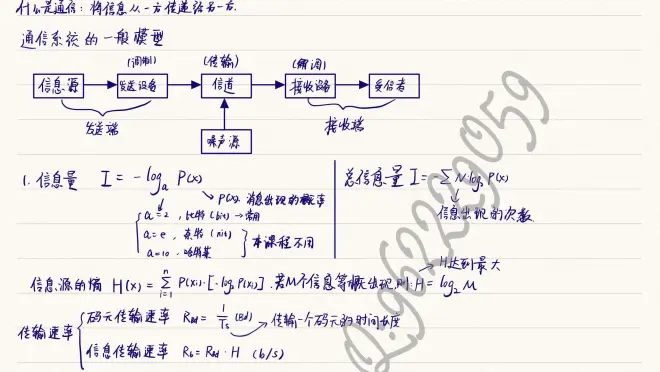 什么是通信：将信息从一方传递给另一方.
通信系统的一般模型
(调制) (传输) (解调)
信息源 发送设备 信道 接收设备 受信者
发送端 接收端
噪声源
1. 信息量 I = -logₐ P(x) 总信息量 I = ∑ N logₐ P(x)
P(x): 消息出现的概率
信息出现的次数.
a=2, 比特(bit) → 常用
a=e, 奈特(nit)
a=10, 哈特莱
本课程不用
H达到最大
信息源的熵 H(x) = ∑ᵢ₌₁ⁿ P(xᵢ)·[-log₂P(xᵢ)]. 若M个信息等概出现,则: H = log₂ M
传输速率
码元传输速率 R_Bd = 1/Ts (Bd) 传输一个码元的时间长度
信息传输速率 R_b = R_Bd · H (b/s)
Q:962229059